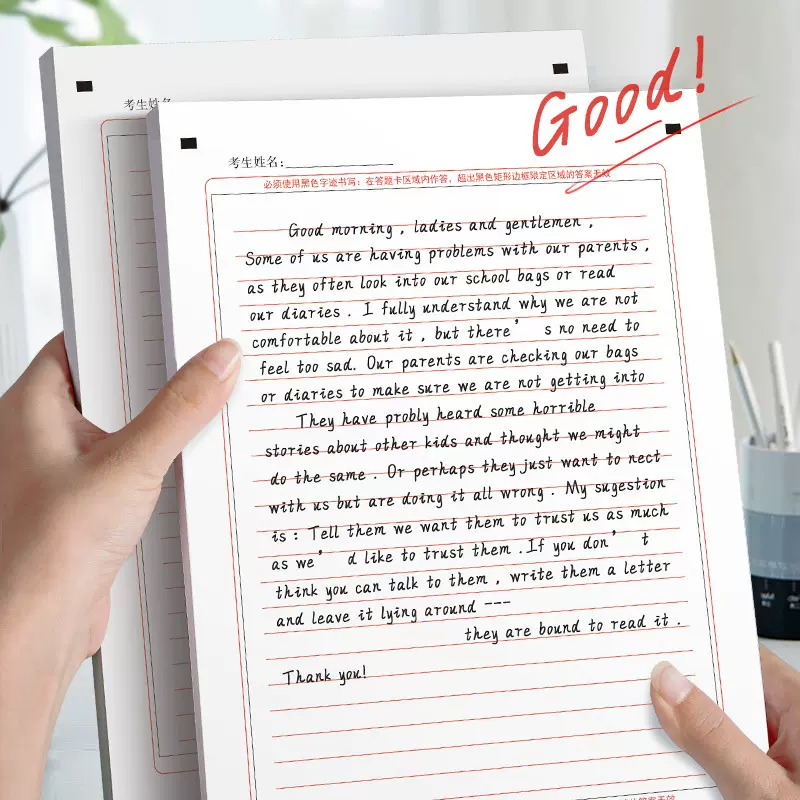 Good!
考生姓名
考生姓名:
必须使用黑色字迹书写:在答题卡区域内作答,超出黑色矩形边框锁定区域的答案无效
Good morning , ladies and gentlemen ,
Some of us are having problems with our parents ,
as they often look into our school bags or read
our diaries . I fully understand why we are not
comfortable about it , but there’ s no need to
feel too sad. Our parents are checking our bags
or diaries to make sure we are not getting into
They have probly heard some horrible
stories about other kids and thought we might
do the same . Or perhaps they just want to nect
with us but are doing it all wrong . My sugestion
is : Tell them we want them to trust us as much
as we’ d like to trust them .If you don’ t
think you can talk to them , write them a letter
and leave it lying around ---
they are bound to read it .
Thank you!